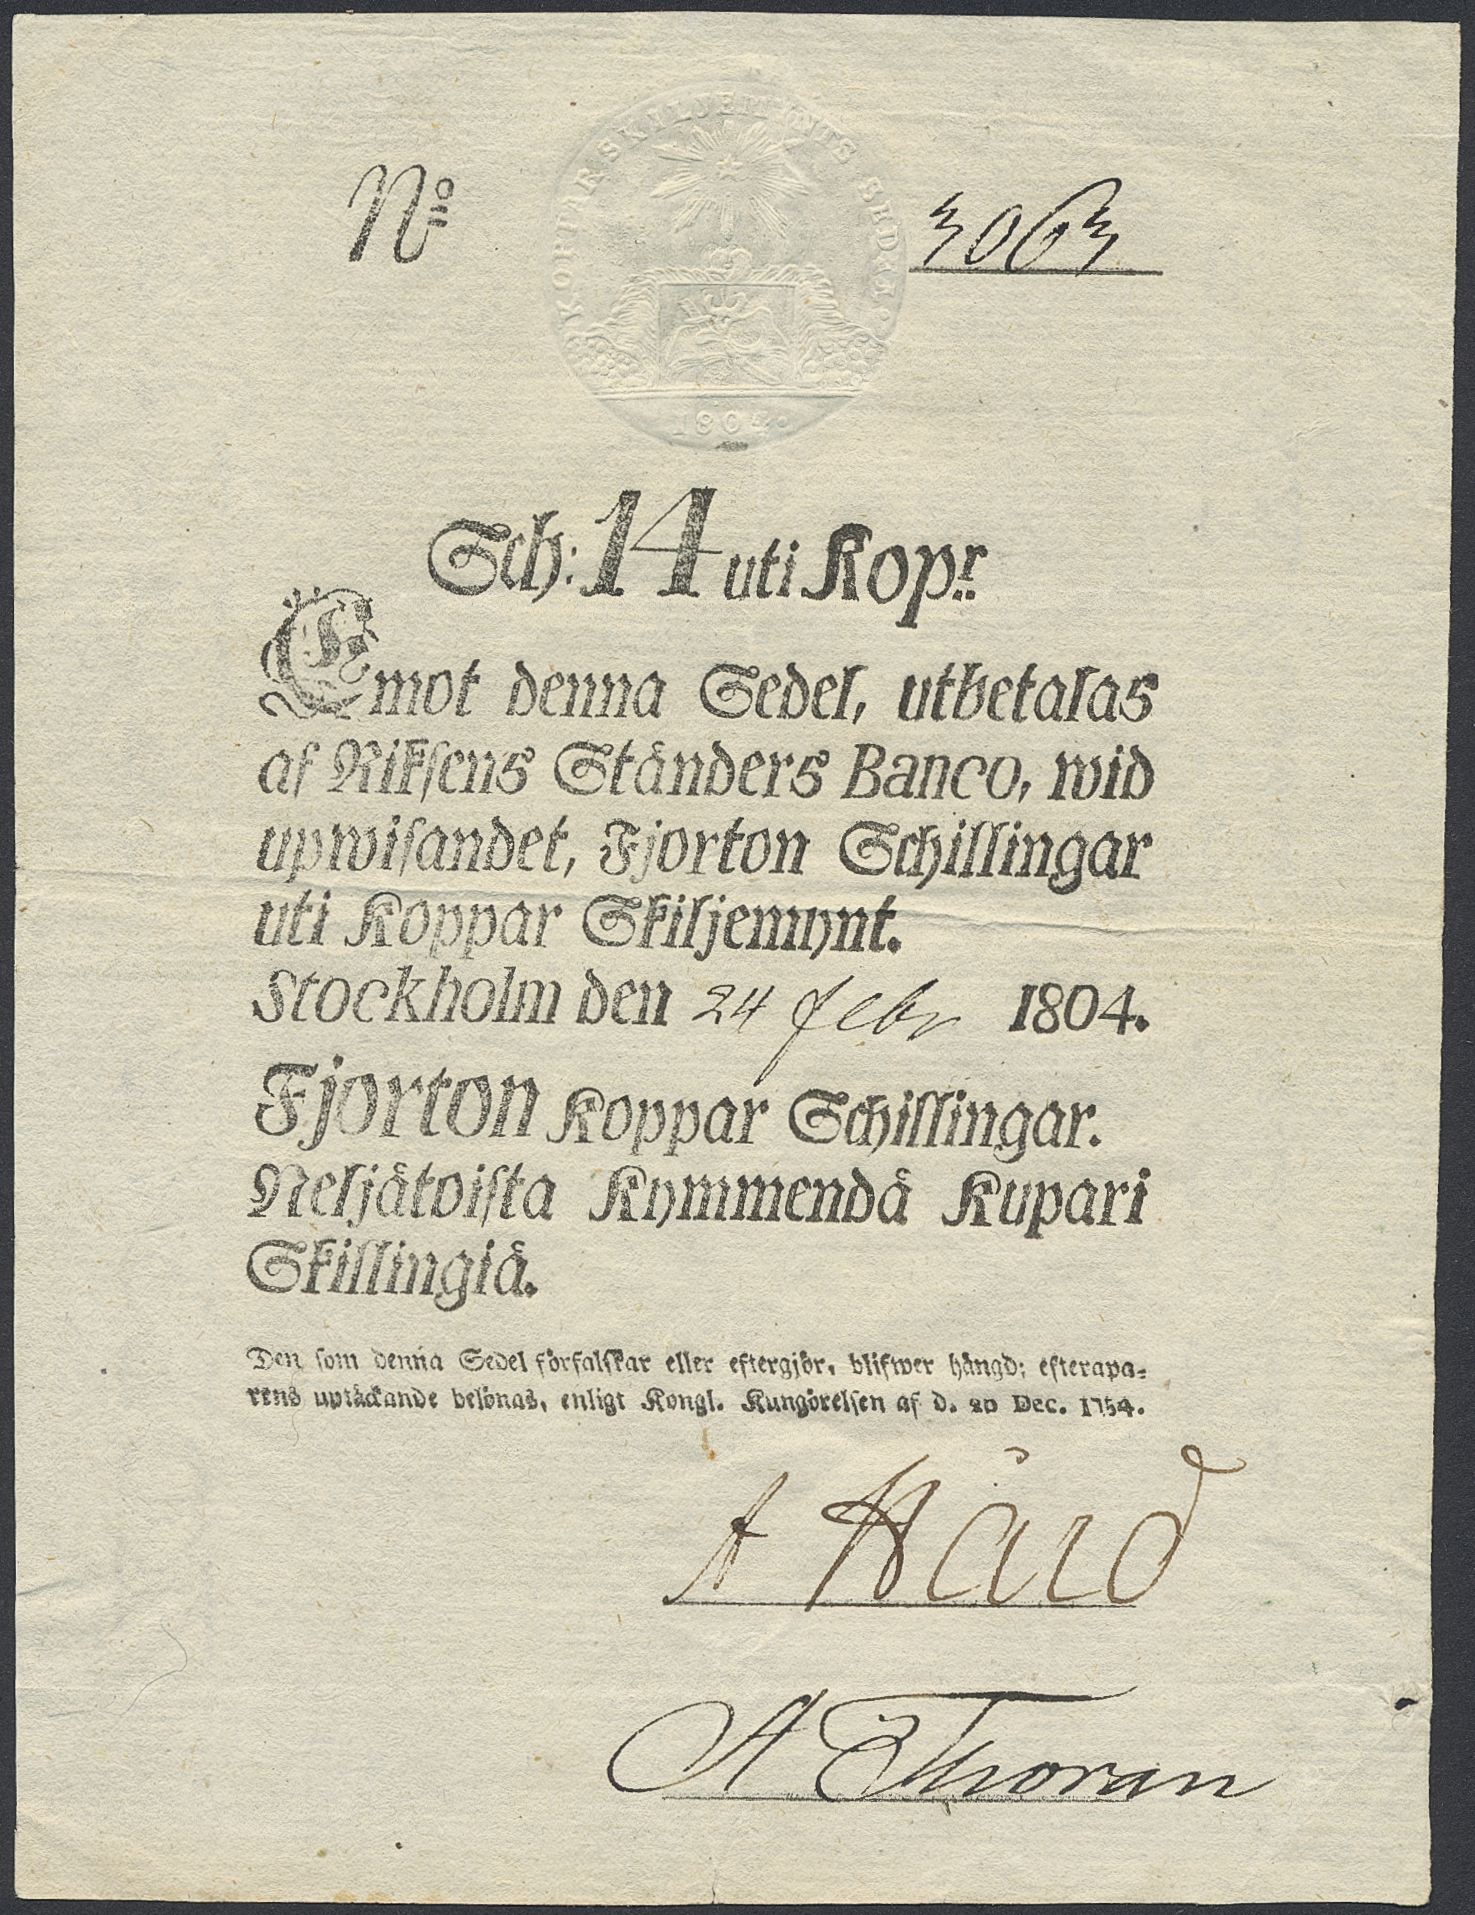 KOPPARSKILJEMYNTS SEDEL.
1804.
No 3063
Sch: 14 uti Kopr
Emot denna Sedel, utbetalas
af Riksens Ständers Banco, wid
upwisandet, Fjorton Schillingar
uti Koppar Skiljemynt.
Stockholm den 24 Febr 1804.
Fjorton Koppar Schillingar.
Neljätoista Kymmendä Kupari
Skillingiä.
Den som denna Sedel förfalskar eller eftergjör, blifwer hängd; efterapa-
rens uptäckande belönas, enligt Kongl. Kungörelsen af d. 20 Dec. 1754.
A Hård
A Thoran